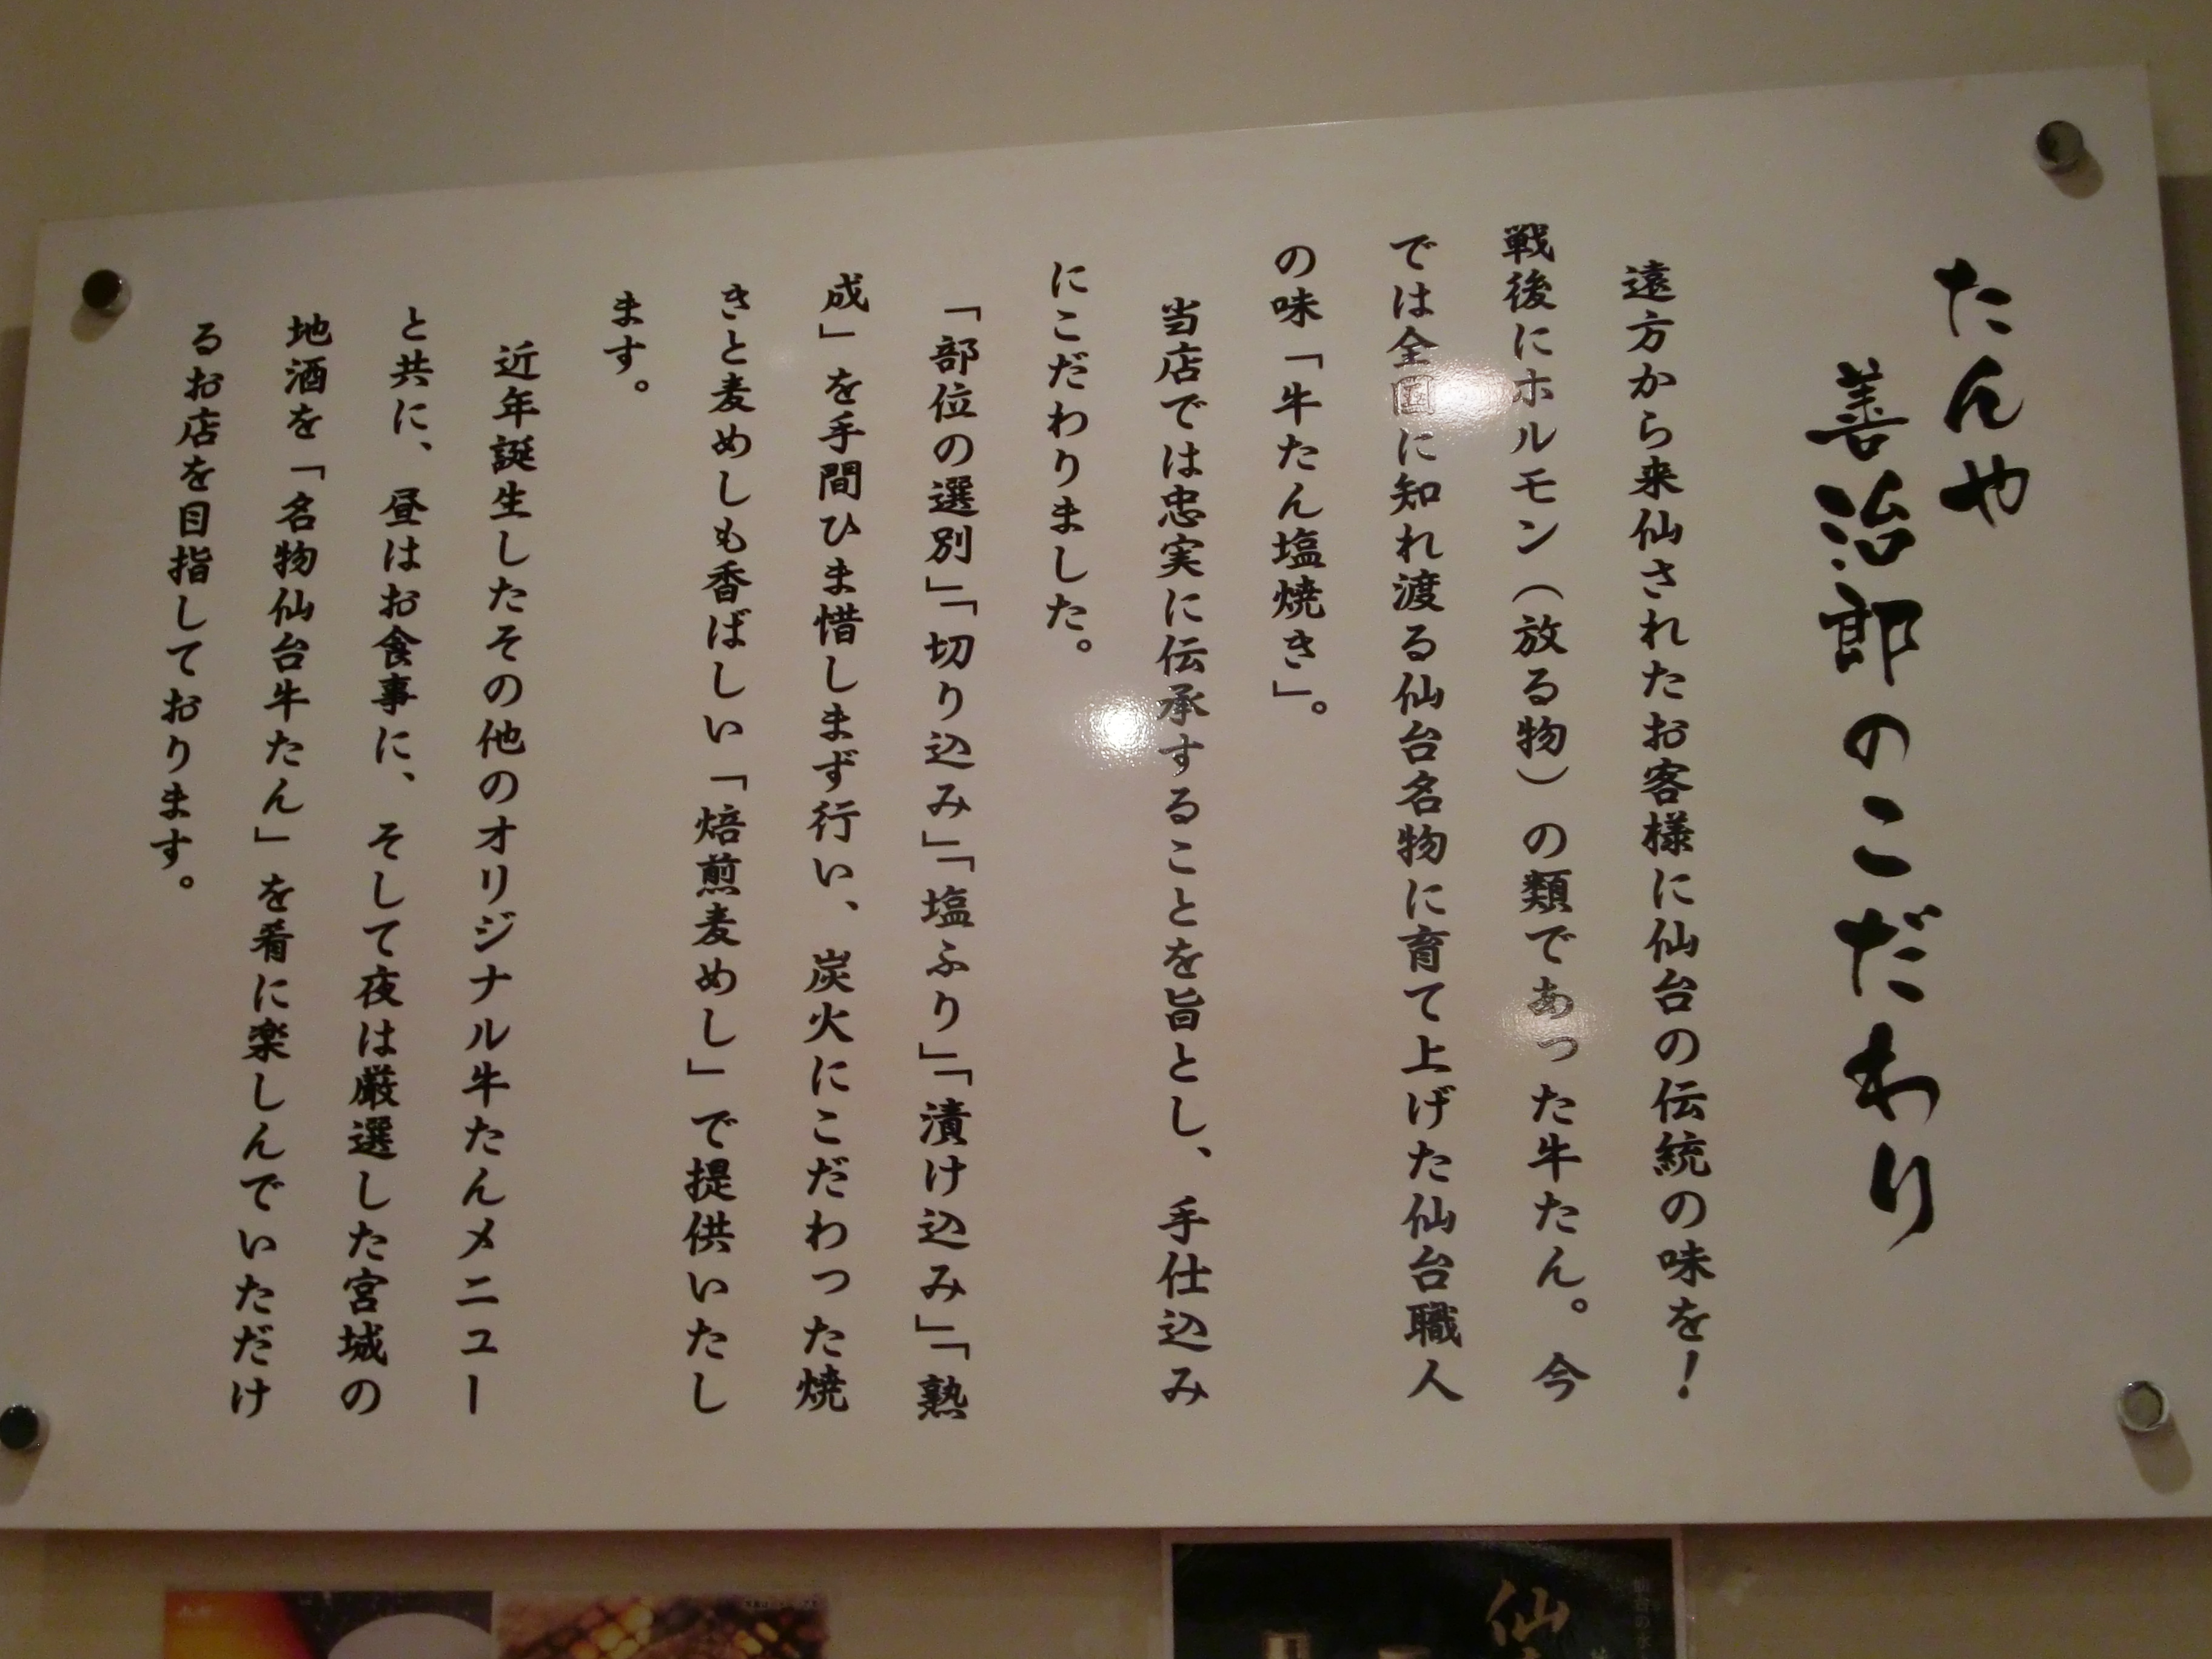 たんや
善治郎のこだわり
遠方から来仙されたお客様に仙台の伝統の味を！
戦後にホルモン（放る物）の類であった牛たん。今
では全国に知れ渡る仙台名物に育て上げた仙台職人
の味「牛たん塩焼き」。
当店では忠実に伝承することを旨とし、手仕込み
にこだわりました。
「部位の選別」「切り込み」「塩ふり」「漬け込み」「熟
成」を手間ひま惜しまず行い、炭火にこだわった焼
きと麦めしも香ばしい「焙煎麦めし」で提供いたし
ます。
近年誕生したその他のオリジナル牛たんメニュー
と共に、昼はお食事に、そして夜は厳選した宮城の
地酒を「名物仙台牛たん」を肴に楽しんでいただけ
るお店を目指しております。
仙